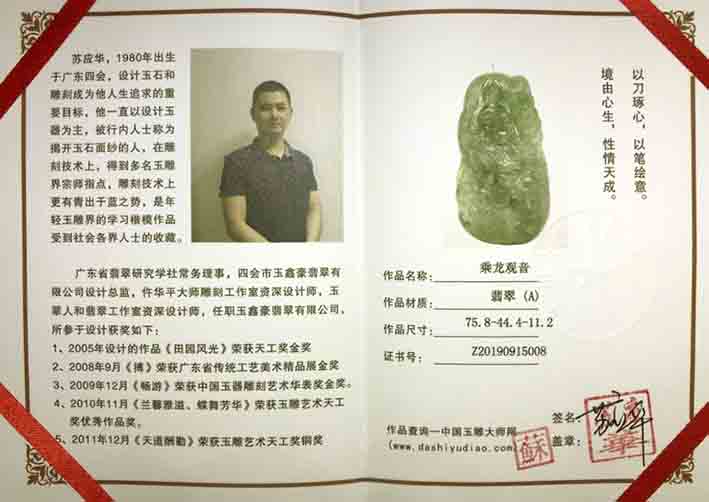 苏应华，1980年出生
于广东四会，设计玉石和
雕刻成为他人生追求的重
要目标，他一直以设计玉
器为主，被行内人士称为
揭开玉石面纱的人，在雕
刻技术上，得到多名玉雕
界宗师指点，雕刻技术上
更有青出于蓝之势，是年
轻玉雕界的学习楷模作品
受到社会各界人士的收藏。
广东省翡翠研究学社常务理事，四会市玉鑫豪翡翠有
限公司设计总监，仵华平大师雕刻工作室资深设计师，玉
翠人和翡翠工作室资深设计师，任职玉鑫豪翡翠有限公司，
所参于设计获奖如下：
1、2005年设计的作品《田园风光》荣获天工奖金奖
2、2008年9月《搏》荣获广东省传统工艺美术精品展金奖
3、2009年12月《畅游》荣获中国玉器雕刻艺术华表奖金奖。
4、2010年11月《兰馨雅滋、蝶舞芳华》荣获玉雕艺术天工
奖优秀作品奖。
5、2011年12月《天道酬勤》荣获玉雕艺术天工奖铜奖
以刀琢心，以笔绘意。
境由心生，性情天成。
作品名称: 乘龙观音
作品材质: 翡翠 (A)
作品尺寸: 75.8-44.4-11.2
证书号: Z20190915008
作品查询—中国玉雕大师网
(www.dashiyudiao.com)
签名:
盖章:
蘇